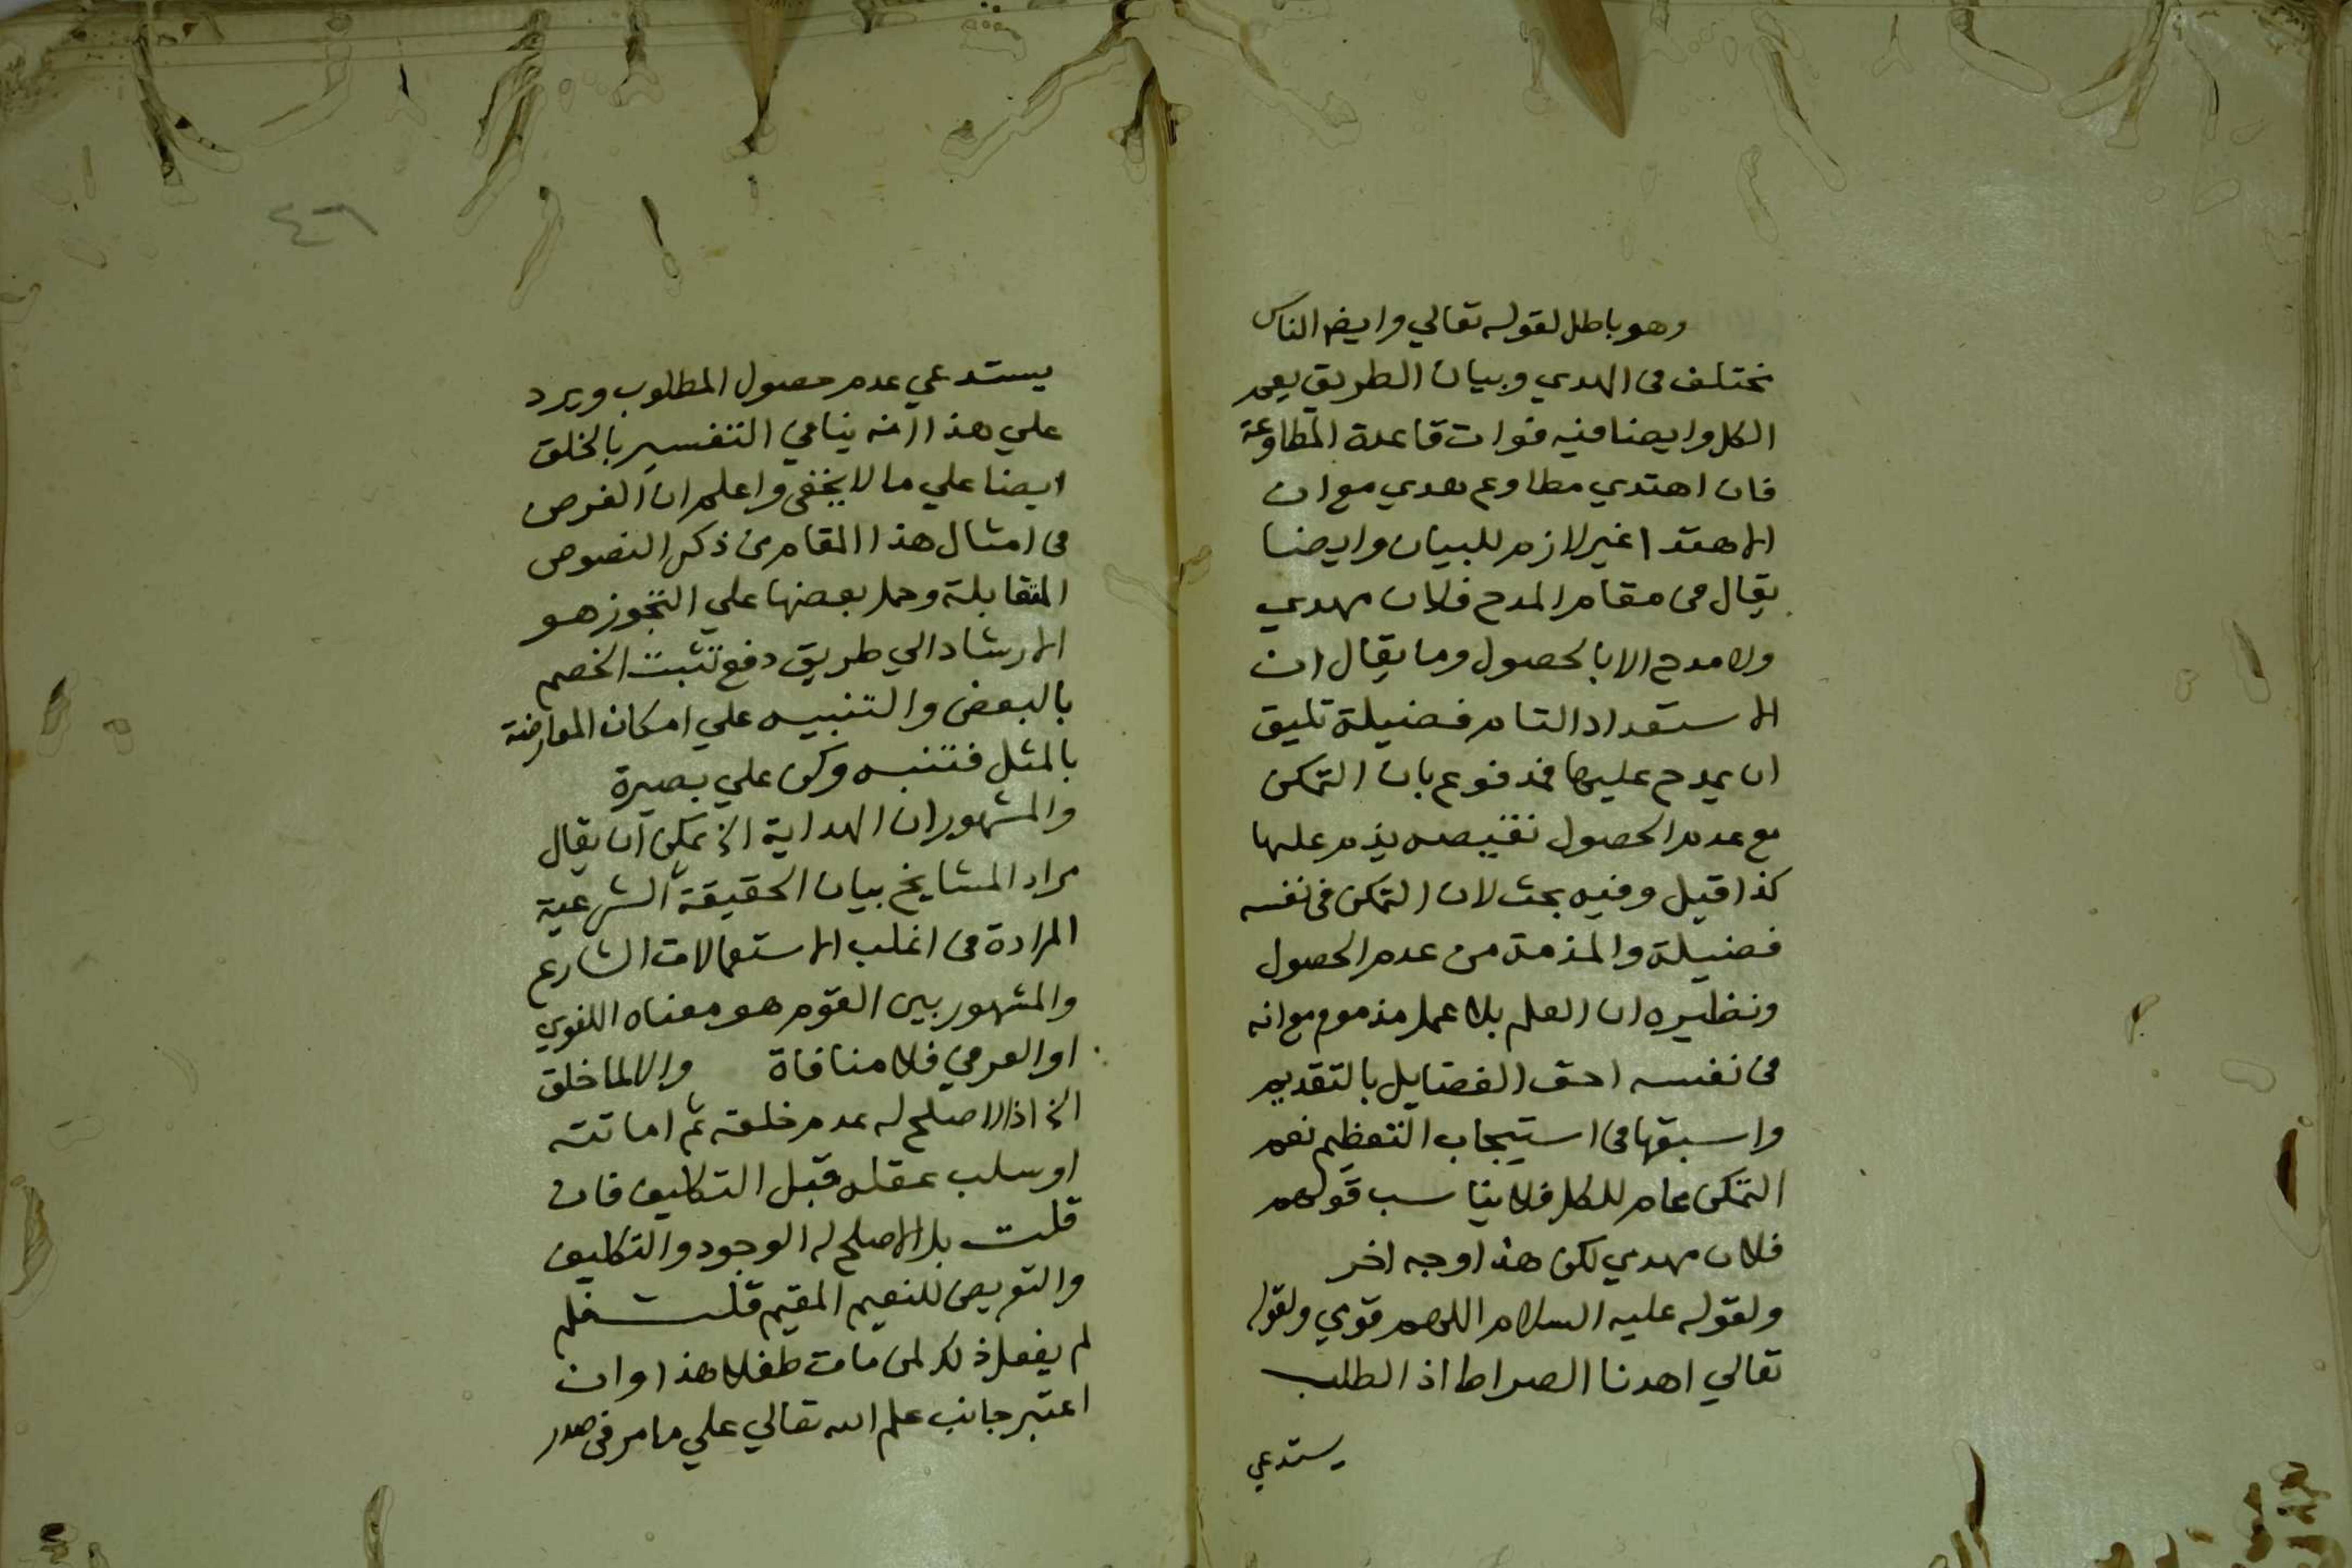 وهو باطل لقوله تعالي وايضا الناس
نختلف في الهدي وبيان الطريق يعم
الكل وايضا فيه فوات قاعدة المطاوعة
فان اهتدي مطاوع هدي مع ان
الاهتدا غير لازم للبيان وايضا
يقال في مقام المدح فلان مهدي
ولا مدح الا بالحصول وما يقال ان
الاستعداد التام فضيلة تليق
ان يمدح عليها فمدفوع بان التمكن
مع عدم الحصول نقيصه يذم عليها
كذا قيل وفيه بحث لان التمكن في نفسه
فضيلة والمذمة من عدم الحصول
ونظيره ان العلم بلا عمل مذموم مع انه
في نفسه احق الفضايل بالتقديم
واسبقها في استيجاب التعظيم نعم
التمكن عام للكل فلا يناسب قولهم
فلان مهدي لكن هذا وجه اخر
ولقوله عليه السلام اللهم قومي ولقوله
تعالي اهدنا الصراط اذ الطلب
يستدعي
٤٦
يستدعي عدم حصول المطلوب ويرد
علي هذا انه ينافي التفسير بالخلق
ايضا علي ما لا يخفي واعلم ان الغرض
في امثال هذا المقام من ذكر النصوص
المتقابلة وحمل بعضها علي التجوز هو
الارشاد الي طريق دفع تشبث الخصم
بالبعض والتنبيه علي امكان المعارضة
بالمثل فتنبه وكن علي بصيرة
والمشهور ان الهداية الخ يمكن ان يقال
مراد المشايخ بيان الحقيقة الشرعية
المرادة في اغلب الاستعمالات الشارع
والمشهور بين القوم هو معناه اللغوي
او العرفي فلا منافاة والا لما خلق
الخ اذ الاصلح له عدم خلقه ثم اماتته
او سلب عقله قبل التكليف فان
قلت بل الاصلح له الوجود والتكليف
والتعريض للنعيم المقيم قلت فلم
لم يفعل ذلك لمن مات طفلا هذا وان
اعتبر جانب علم الله تعالي علي ما مر في صدر